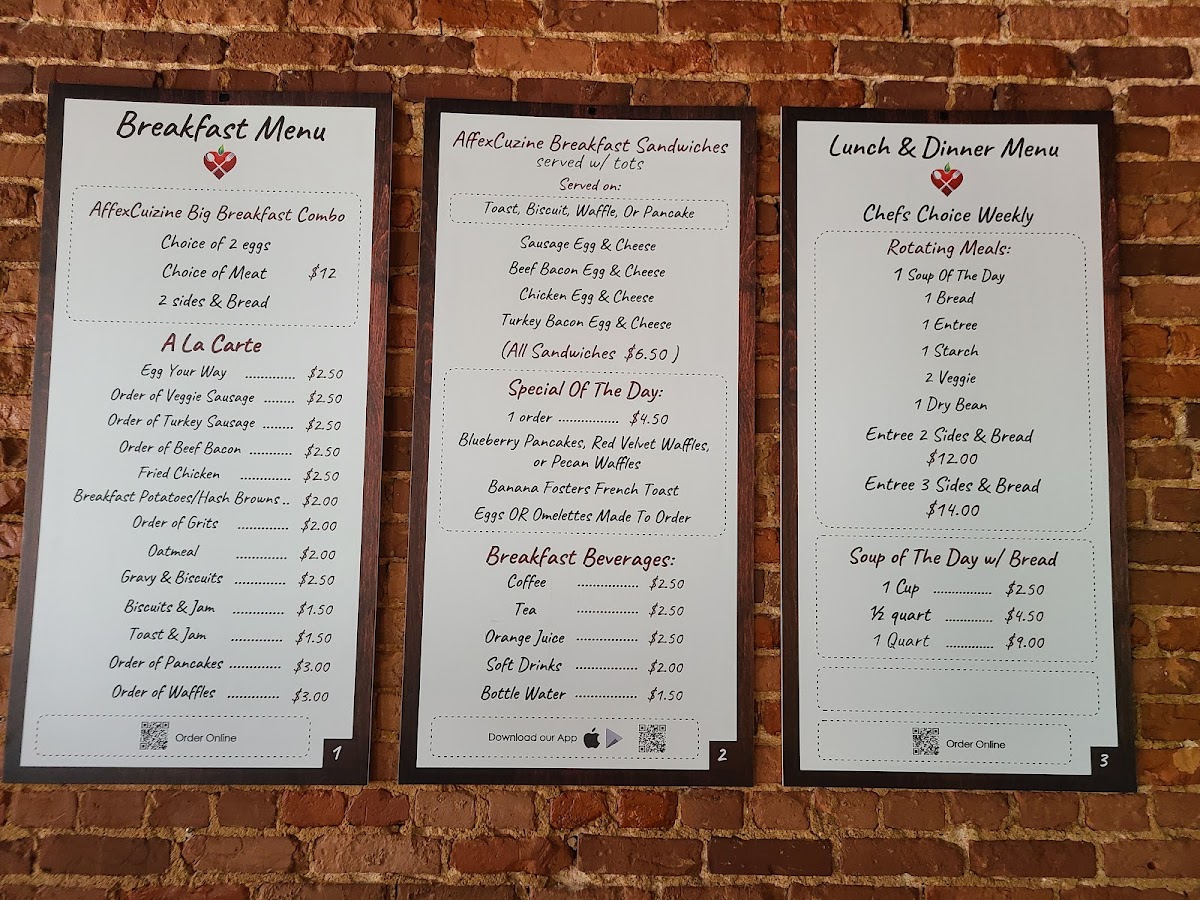 Breakfast Menu
AffexCuizine Big Breakfast Combo
Choice of 2 eggs
Choice of Meat $12
2 sides & Bread
A La Carte
Egg Your Way ............. $2.50
Order of Veggie Sausage ........ $2.50
Order of Turkey Sausage ........ $2.50
Order of Beef Bacon ........... $2.50
Fried Chicken ............. $2.50
Breakfast Potatoes/Hash Browns .. $2.00
Order of Grits ............. $2.00
Oatmeal ............. $2.00
Gravy & Biscuits ............. $2.50
Biscuits & Jam ............. $1.50
Toast & Jam ............. $1.50
Order of Pancakes ............. $3.00
Order of Waffles ............. $3.00
Order Online
1
AffexCuzine Breakfast Sandwiches
served w/ tots
Served on:
Toast, Biscuit, Waffle, Or Pancake
Sausage Egg & Cheese
Beef Bacon Egg & Cheese
Chicken Egg & Cheese
Turkey Bacon Egg & Cheese
(All Sandwiches $6.50 )
Special Of The Day:
1 order .................. $4.50
Blueberry Pancakes, Red Velvet Waffles,
or Pecan Waffles
Banana Fosters French Toast
Eggs OR Omelettes Made To Order
Breakfast Beverages:
Coffee ................ $2.50
Tea ................ $2.50
Orange Juice ................ $2.50
Soft Drinks ................ $2.00
Bottle Water ................ $1.50
Download our App
2
Lunch & Dinner Menu
Chefs Choice Weekly
Rotating Meals:
1 Soup Of The Day
1 Bread
1 Entree
1 Starch
2 Veggie
1 Dry Bean
Entree 2 Sides & Bread
$12.00
Entree 3 Sides & Bread
$14.00
Soup of The Day w/ Bread
1 Cup ............... $2.50
½ quart ............ $4.50
1 Quart ............ $9.00
Order Online
3